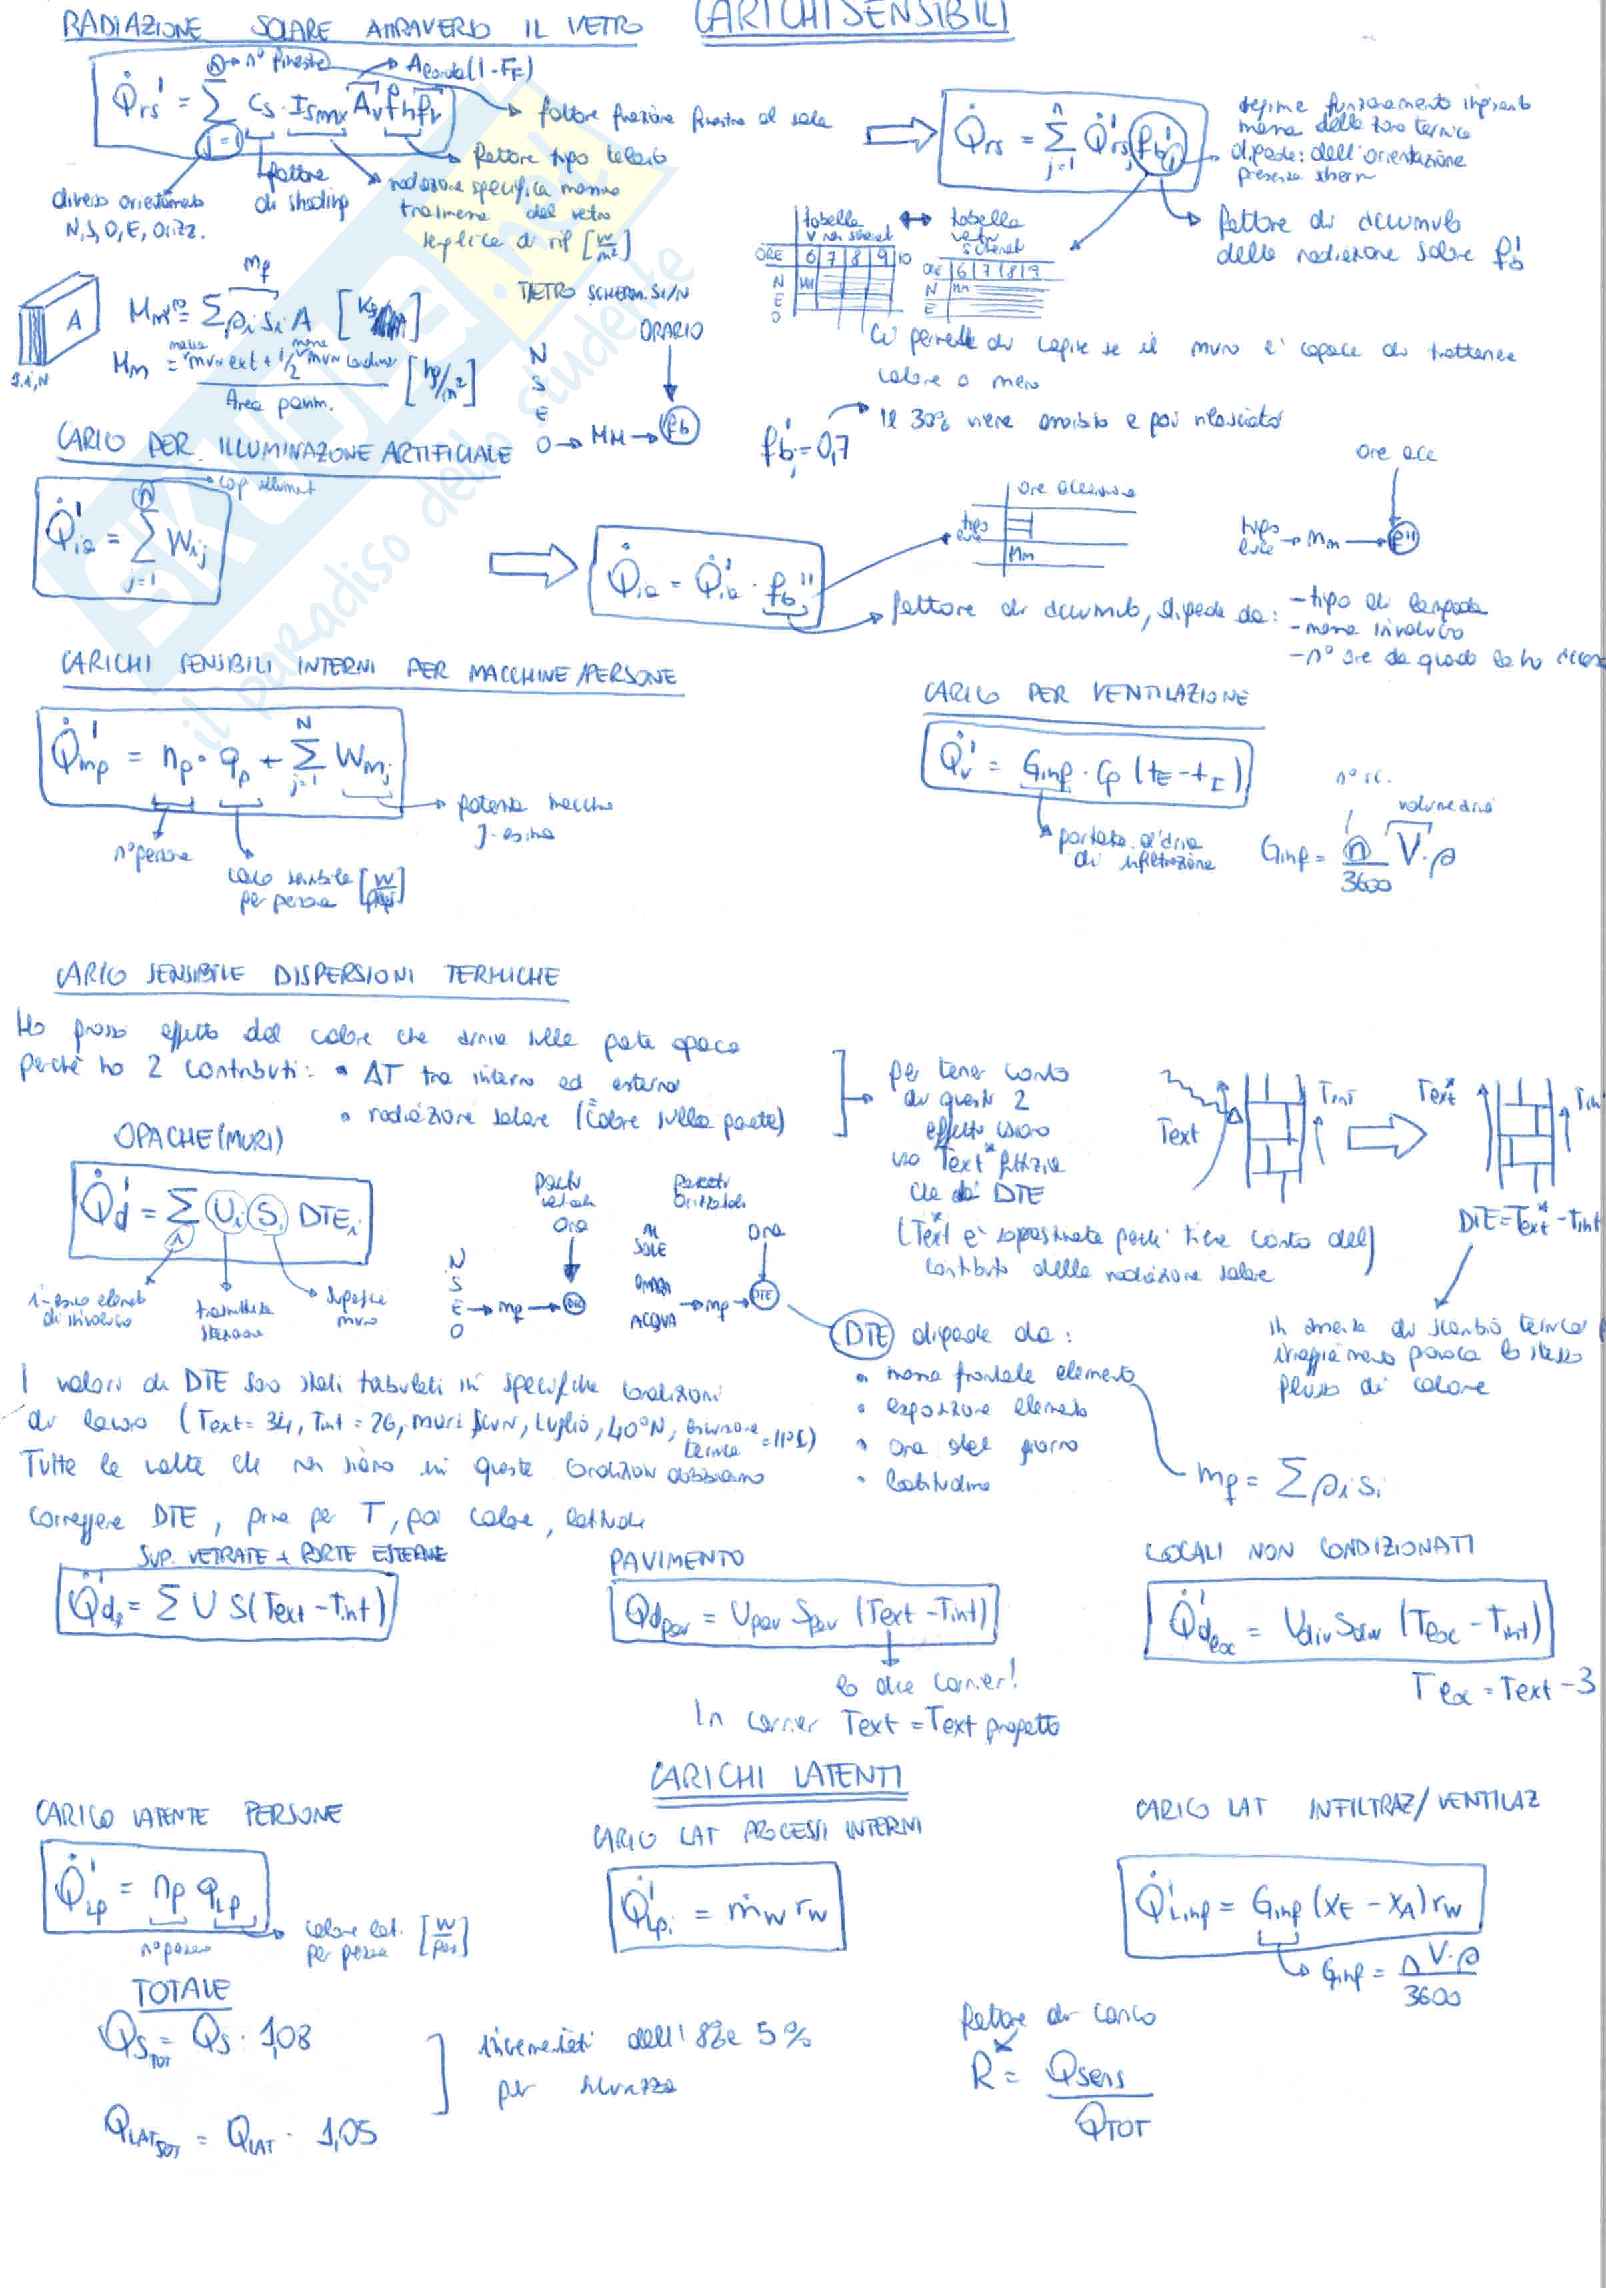 CARICHI SENSIBILI
RADIAZIONE SOLARE ATTRAVERSO IL VETRO
n° finestre
A (1-FF)
Q̇rs' = Σ j=1 n Cs · ISmax Av fh fv
fattore frazione finestra al sole
fattore tipo telaio
fattore di shading
radiazione specifica massima
trasmessa dal vetro
semplice di rif [W/m²]
diverso orientamento
N,S,O,E, Orizz.
Q̇rs = Σ j=1 n Q̇rs,j' fb'j
regime funzionamento impianto
massa della zona termica
dipende: dell'orientazione
presenza schermi
fattore di accumulo
della radiazione solare fb'
tabella
v non schermat
tabella
vetri
schermat
ORE 6 7 8 9 10
N
E
O
ORE 6 7 8 9
N
E
Ci permette di capire se il muro è capace di trattenere
calore o meno
A
mf
= Σ ρi si A
Mm = muri ext + 1/2 muri
Area pavim.
[kg/m²]
VETRO SCHERM. SI/N
ORARIO
N
S
E
O → MM → fb
fb' = 0,7
Il 30% viene assorbito e poi rilasciato
CARICO PER ILLUMINAZIONE ARTIFICIALE
Q̇ia' = Σ j=1 n Wij
Q̇ia = Q̇ia' · fb''
ore accensione
tipo
luce
Mm
ore acc
tipo
luce → Mm → f''
fattore di accumulo, dipende da:
- tipo di lampada
- massa involucro
- n° ore da quando la ho accesa
CARICHI SENSIBILI INTERNI PER MACCHINE/PERSONE
Q̇mp' = np · qp + Σ j=1 N Wmj
potenza macchina
J-esima
n° persone
carico sensibile [W/pers]
per persona
CARICO PER VENTILAZIONE
Q̇v' = Ginf · Cp (tE - tI)
portata d'aria
di infiltrazione
Ginf = n/3600 V · ρ
volume aria
CARICO SENSIBILE DISPERSIONI TERMICHE
Ho grosso effetto del calore che arriva sulla parte opaca
perchè ho 2 contributi: • ΔT tra interno ed esterno
• radiazione solare (calore sulla parete)
per tener conto
di questi 2
effetti usiamo
una Text* fittizia
che dà DTE
(Text* è soprastimata perchè tiene conto del
contributo della radiazione solare)
Text
Tint
Text*
Tint
DTE = Text* - Tint
in assenza di scambio termico
irraggiamento provoca lo stesso
flusso di calore
OPACHE (MURI)
Q̇d' = Σ i Ui Si DTEi
i-esimo elemento
di involucro
trasmittanza
stazionaria
superficie
muro
pareti
verticali
ora
N
S
E → mf → DTE
O
pareti
orizzontali
ora
SOLE
OMBRA
ACQUA → mf → DTE
DTE dipende da:
• massa frontale elemento
• esposizione elemento
• ora del giorno
• latitudine
mf = Σ ρi si
I valori di DTE sono stati tabulati in specifiche condizioni
di lavoro (Text = 34, Tint = 26, muri scuri, Luglio, 40°N, escursione termica = 11°C)
Tutte le volte che non siamo in queste condizioni dobbiamo
correggere DTE, prima per T, poi colore, latitudine
SUP. VETRATE + PORTE ESTERNE
Q̇d' = Σ U S (Text - Tint)
PAVIMENTO
Qdpav = Upav Spav (Text - Tint)
lo dice Carrier!
In Carrier Text = Text progetto
LOCALI NON CONDIZIONATI
Q̇dloc' = Udiv Sdiv (Tloc - Tint)
Tloc = Text - 3
CARICHI LATENTI
CARICO LATENTE PERSONE
Q̇Lp' = np qLp
n° persone
calore lat. [W/pers]
per persona
CARICO LAT PROCESSI INTERNI
Q̇Lpi' = ṁw rw
CARICO LAT INFILTRAZ/VENTILAZ
Q̇'Linf = Ginf (XE - XA) rw
Ginf = n V·ρ / 3600
TOTALE
QSTOT = QS · 1,08
QLATTOT = QLAT · 1,05
incrementati dell'8% e 5%
per sicurezza
fattore di carico
R = Qsens / QTOT
SKUOLA.net
il paradiso dello studente